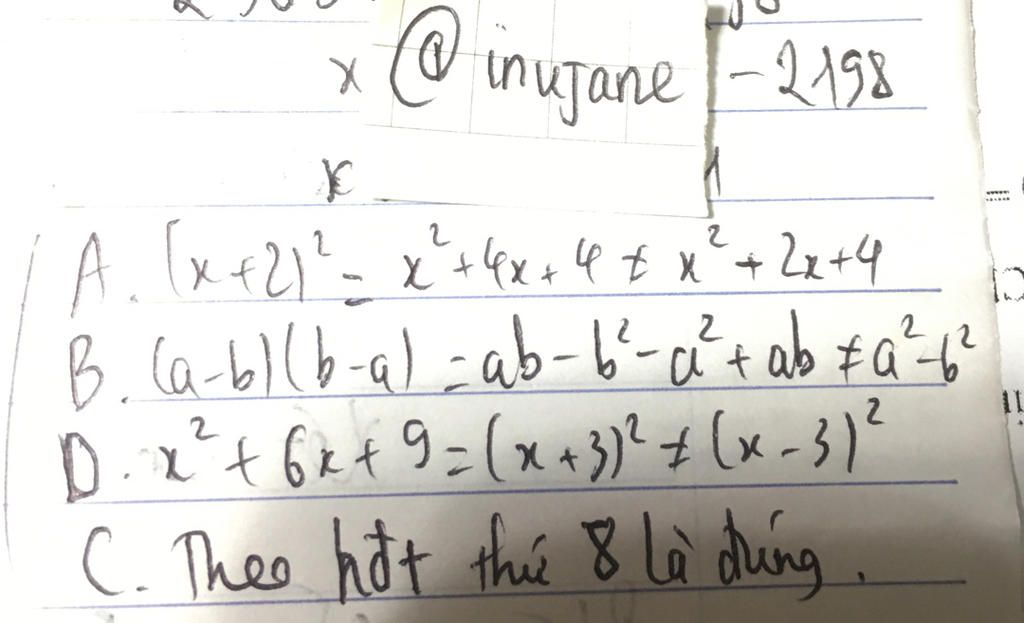 x @ inujane - 2198
x 1
A. (x+2)² = x² + 4x + 4 ≠ x² + 2x + 4
B. (a-b)(b-a) = ab - b² - a² + ab ≠ a² - b²
D. x² + 6x + 9 = (x+3)² ≠ (x-3)²
C. Theo hđt thứ 8 là đúng.